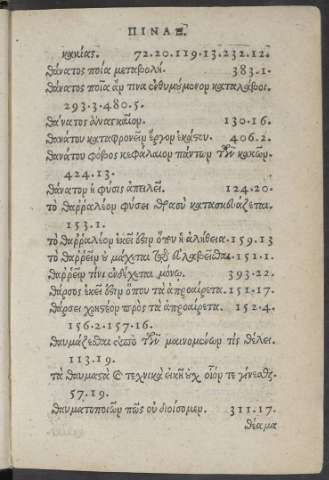 ΠΙΝΑΞ.
κακίας. 72.20.119.13.232.12.
θάνατος ποία μεταβολή. 383.1.
θάνατος ποῖα ἄν τινα ἐνθυμούμενον καταλάβοι.
293.3.480.5.
θάνατος ἀναγκαῖον. 130.16.
θανάτου καταφρονεῖν ἔργον ἑκάστου. 406.2.
θανάτου φόβος κεφάλαιον πάντων τῶν κακῶν.
424.13.
θάνατον ἡ φύσις ἀπειλεῖ. 124.20.
τὸ θαῤῥαλέον φύσει θρασὺ κατασκευάζεται.
153.1.
τὸ θαῤῥαλέον ἐκεῖ ὅθεν ὅπου ἡ ἀλήθεια. 159.13
τὸ θαῤῥεῖν οὐ μάχεται τῷ εὐλαβεῖσθαι. 151.1.
θαῤῥεῖν τίνι ἐνδέχεται μόνῳ. 393.22.
θάρσος ἐκεῖ ὅθεν ὅπου τὰ ἀπροαίρετα. 151.17.
θάρσει χρηστέον πρὸς τὰ ἀπροαίρετα. 152.4.
156.2.157.16.
θαυμάζεσθαι ὑπὸ τῶν μαινομένων τίς θέλει.
113.19.
τὰ θαυμαστὰ καὶ τεχνικὰ εἰκῆ οὐχ οἷόν τε γίνεσθαι.
57.19.
θαυματοποιῶν πῶς οὐ διοίσομεν. 311.17.
θέαμα